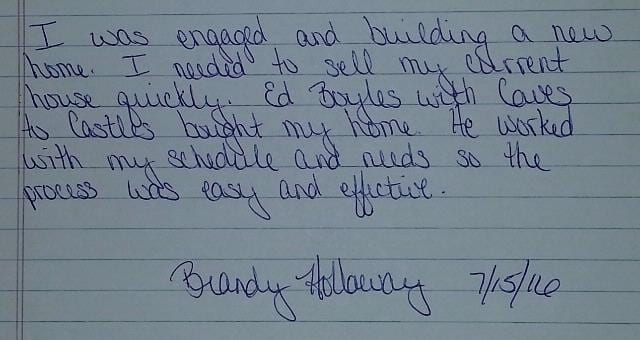 I was engaged and building a new
home. I needed to sell my current
house quickly. Ed Boyles with Caves
to Castles bought my home. He worked
with my schedule and needs so the
process was easy and effective.
Brandy Hollaway 7/15/16